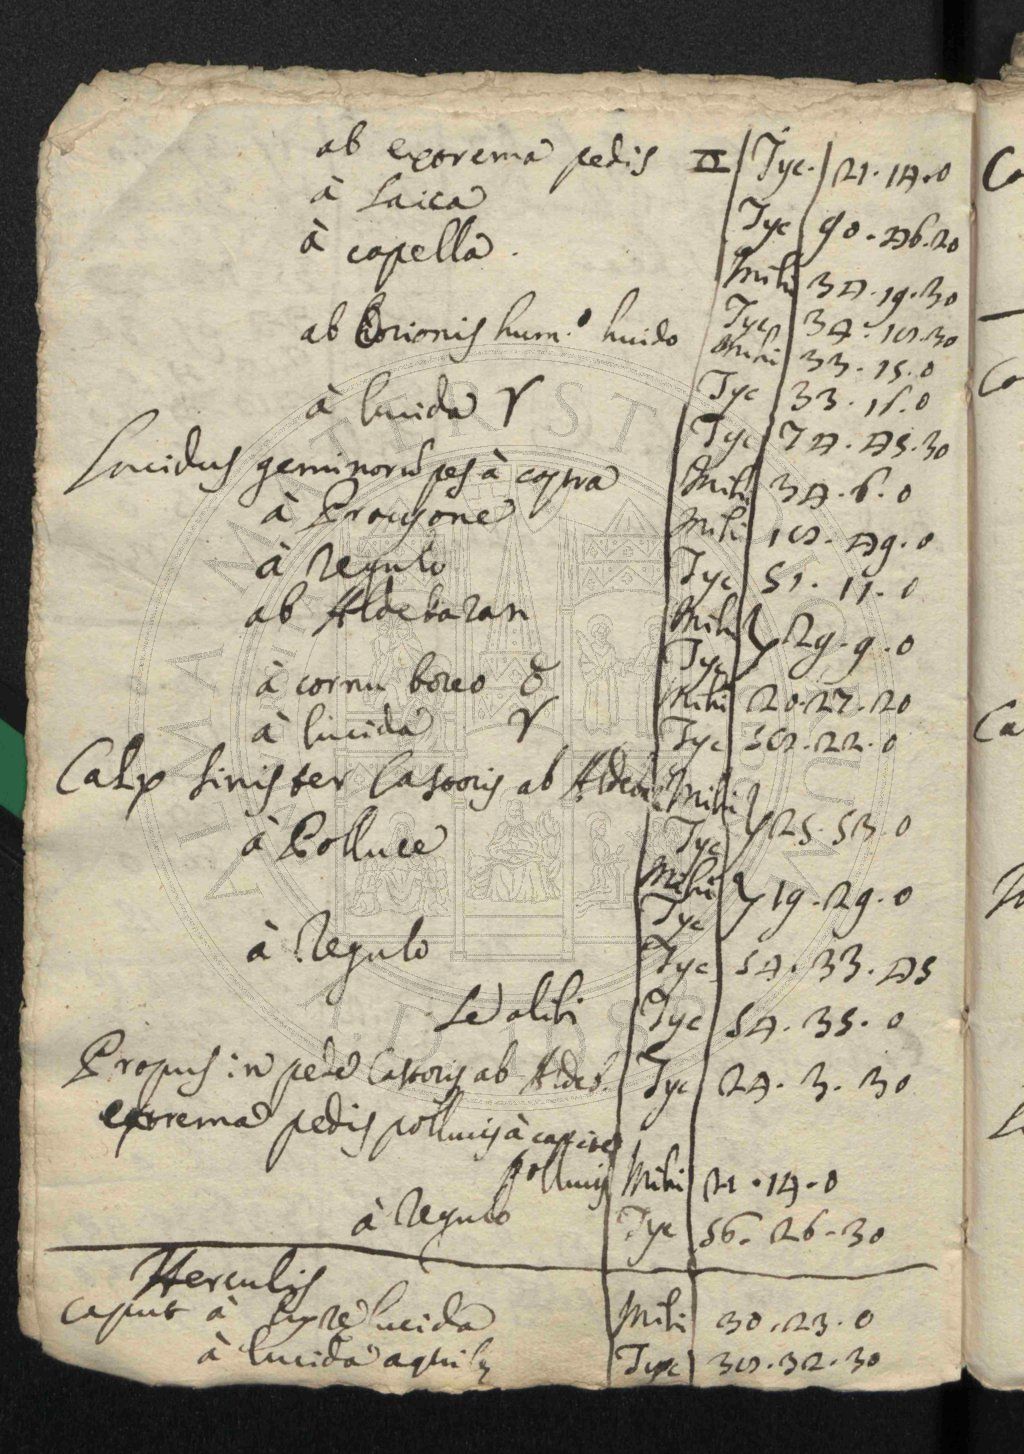 ab extrema pedis ♊ Tyc. 21. 14. 0
à Laica Tyc 90. 46. 20
à capella. Mihi 34. 19. 30
Tyc 34. 18. 30
ab Orionis hum.º lucido Mihi 33. 15. 0
Tyc 33. 15. 0
à lucida ♈ Tyc 74. 45. 30
Lucidus geminorũ pes à capra Mihi 34. 6. 0
à Procyone Mihi 18. 49. 0
à Regulo Tyc 51. 11. 0
ab Aldebaran Mihi
Tyc 29. 9. 0
à cornu boreo ♉ Mihi 20. 27. 20
à lucida ♈ Tyc 58. 22. 0
Calx sinister Castoris ab Aldeb. Mihi
Tyc 25. 53. 0
à Polluce Mihi
Tyc 19. 29. 0
à Regulo Tyc 54. 33. 45
sed alibi Tyc 54. 35. 0
Propus in pede Castoris ab Aldeb. Tyc 24. 3. 30
extrema pedis pollucis à capite
pollucis Mihi 21. 14. 0
à Regulo Tyc 56. 26. 30
Herculis
caput à lyræ lucida Mihi 30. 23. 0
à lucida aquilę Tyc 38. 32. 30